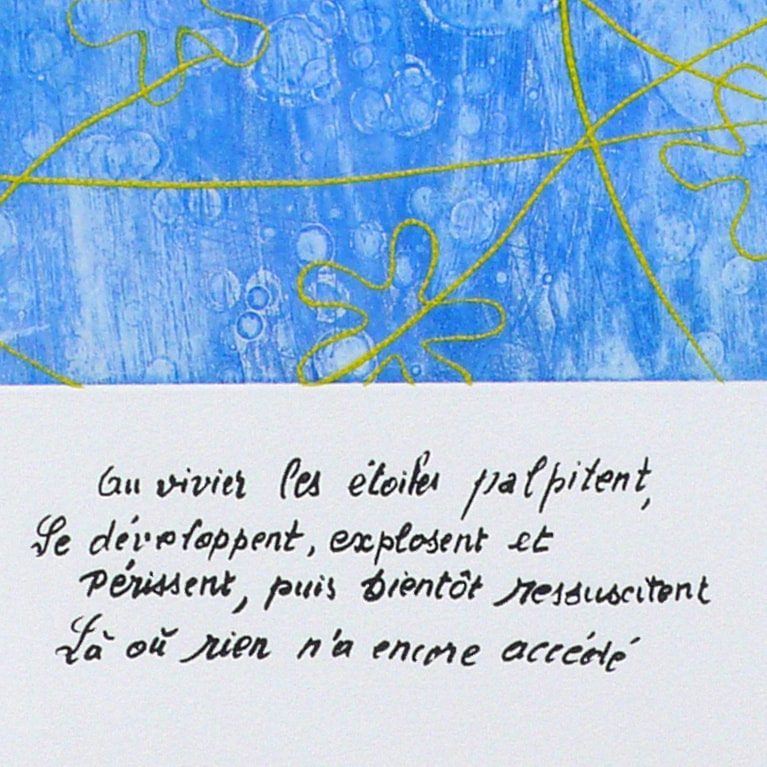 Au vivier les étoiles palpitent,
Se développent, explosent et
Périssent, puis bientôt ressuscitent
Là où rien n'a encore accédé